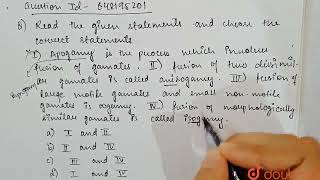 Question Id- 648198201
8) Read the given statements and choose the
correct statements
I) Apogamy is the process which involves
fusion of gametes. II) fusion of two dissimil-
ar gametes is called anisogamy. III) fusion of
large motile gametes and small non-motile
gametes is oogamy. IV) fusion of morphologically
similar gametes is called isogamy.
a) I and II
b) II and IV
c) III and IV
d) I and IV
doubt